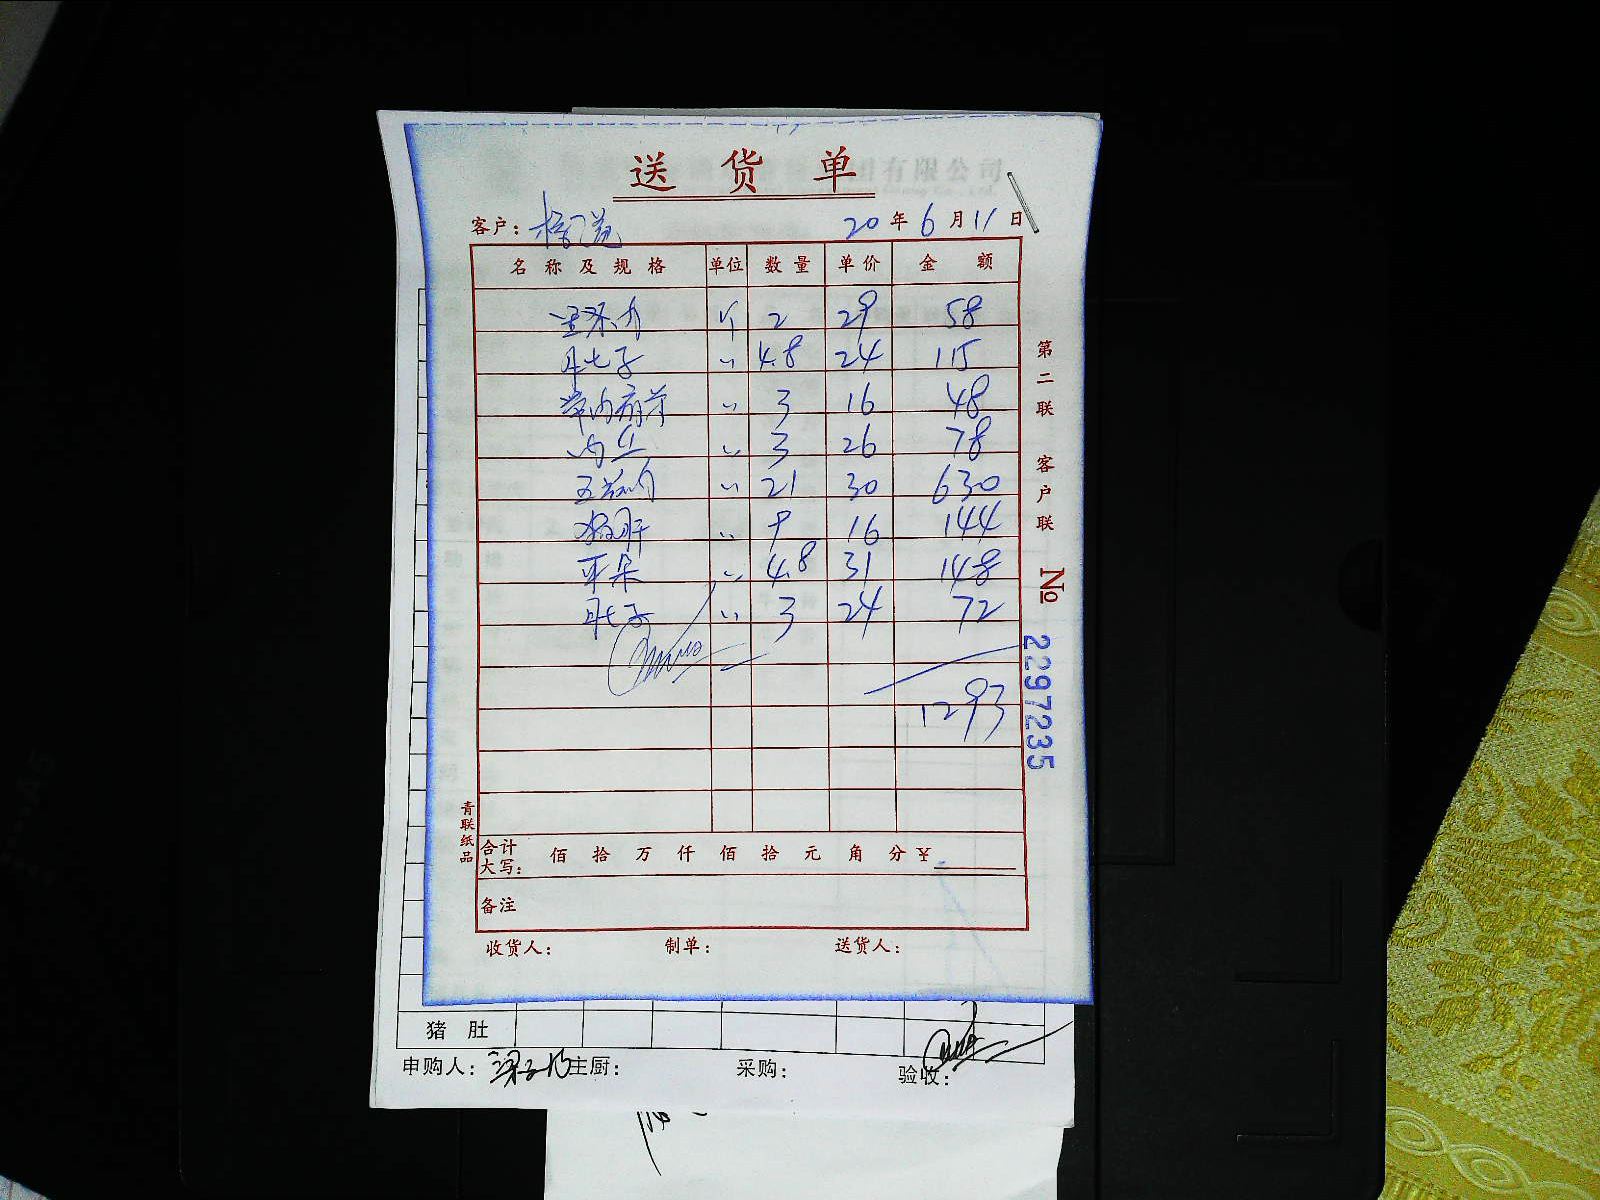 送货单
有限公司
客户： 20年6月11日
名称及规格 单位 数量 单价 金额
个 2 29 58
肚子 〃 4.8 24 115
〃 3 16 48
肉丝 〃 3 26 78
五花肉 〃 21 30 630
猪肝 〃 9 16 144
耳朵 〃 4.8 31 148
肚子 〃 3 24 72
1293
第二联 客户联 No 2297235
青联纸品
合计大写： 佰 拾 万 仟 佰 拾 元 角 分 ¥
备注
收货人： 制单： 送货人：
猪肚
申购人： 主厨： 采购： 验收：